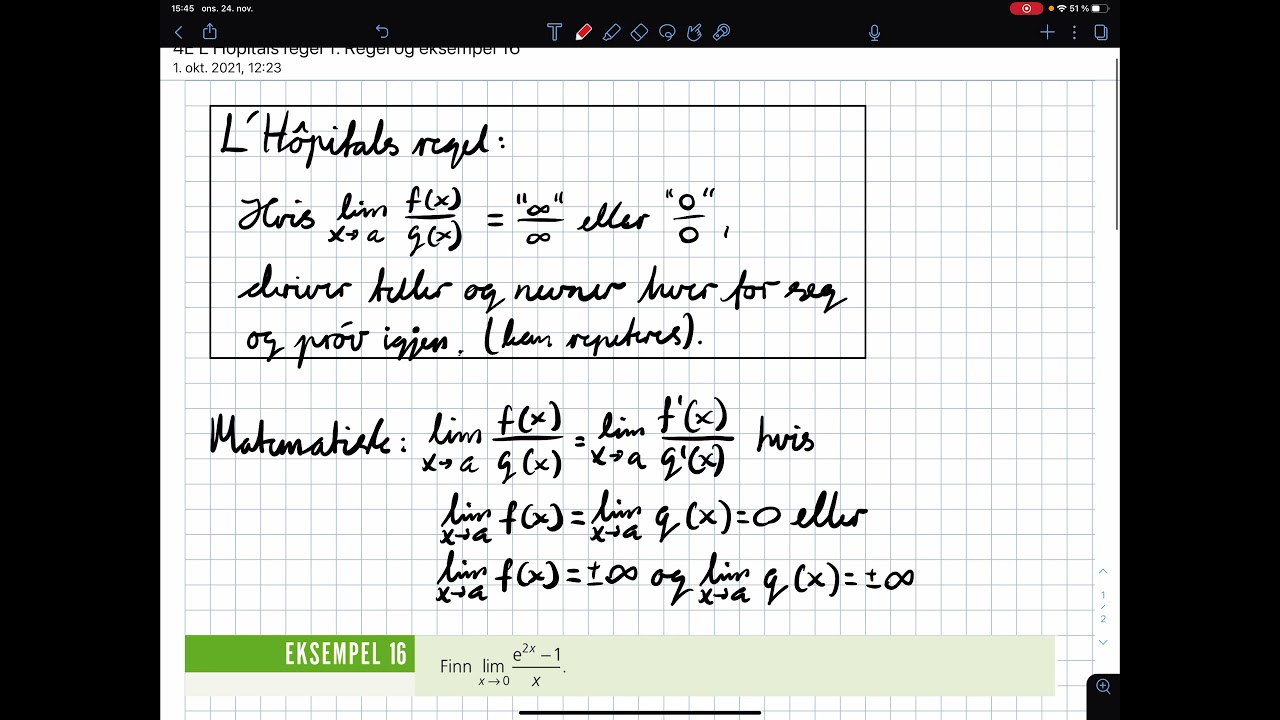 15:45 ons. 24. nov.
51 %
4E L'Hôpitals regel 1. Regel og eksempel 16
1. okt. 2021, 12:23
L´Hôpitals regel:
Hvis lim x→a f(x)/g(x) = "∞"/∞ eller "0"/0,
deriver teller og nevner hver for seg
og prøv igjen. (kan repeteres).
Matematisk: lim x→a f(x)/g(x) = lim x→a f'(x)/g'(x) hvis
lim x→a f(x) = lim x→a g(x) = 0 eller
lim x→a f(x) = ±∞ og lim x→a g(x) = ±∞
1
/
2
EKSEMPEL 16
Finn lim x→0 (e^2x − 1)/x.